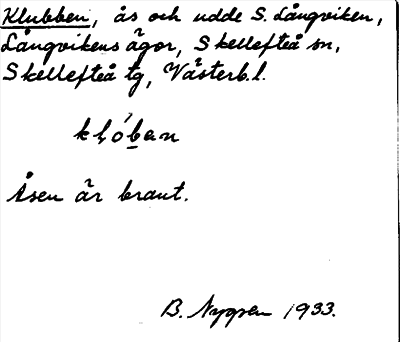 Klubben, ås och udde S. Långviken,
Långvikens ägor, Skellefteå sn,
Skellefteå tg, Västerb. l.
Åsen är brant.
B. Nygren 1933.